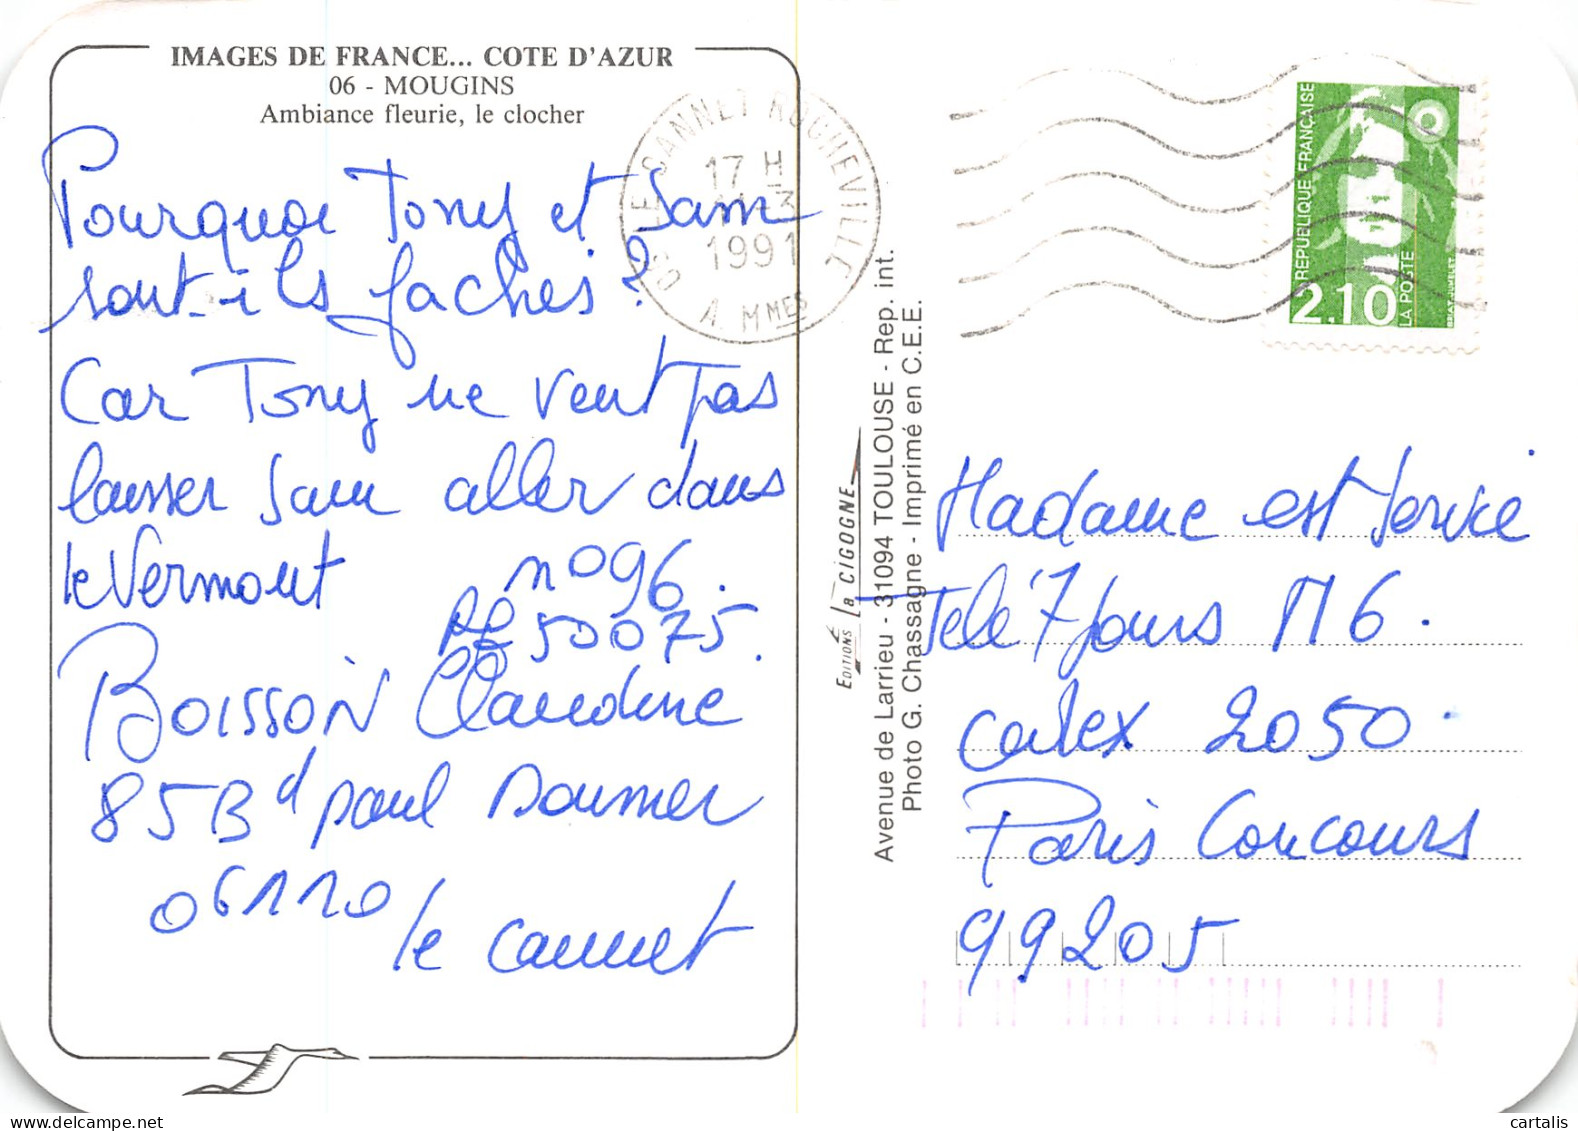 IMAGES DE FRANCE... COTE D'AZUR
06 - MOUGINS
Ambiance fleurie, le clocher
Pourquoi Tony et Sam
sont-ils fachés?
Car Tony ne veut pas
laisser Sam aller dans
le Vermont n° 96.
50075.
BOISSON Claudine
85 Bd paul Doumer
06110
le cannet
LE CANNET ROCHEVILLE
17 H
3
1991
06 A. MMES
REPUBLIQUE FRANÇAISE
2.10
LA POSTE
BRIAT JUMELET
EDITIONS la CIGOGNE
Avenue de Larrieu - 31094 TOULOUSE - Rep. int.
Photo G. Chassagne - Imprimé en C.E.E.
Madame est Service
Télé 7 Jours M6.
cedex 2050.
Paris Concours
99205
cartalis